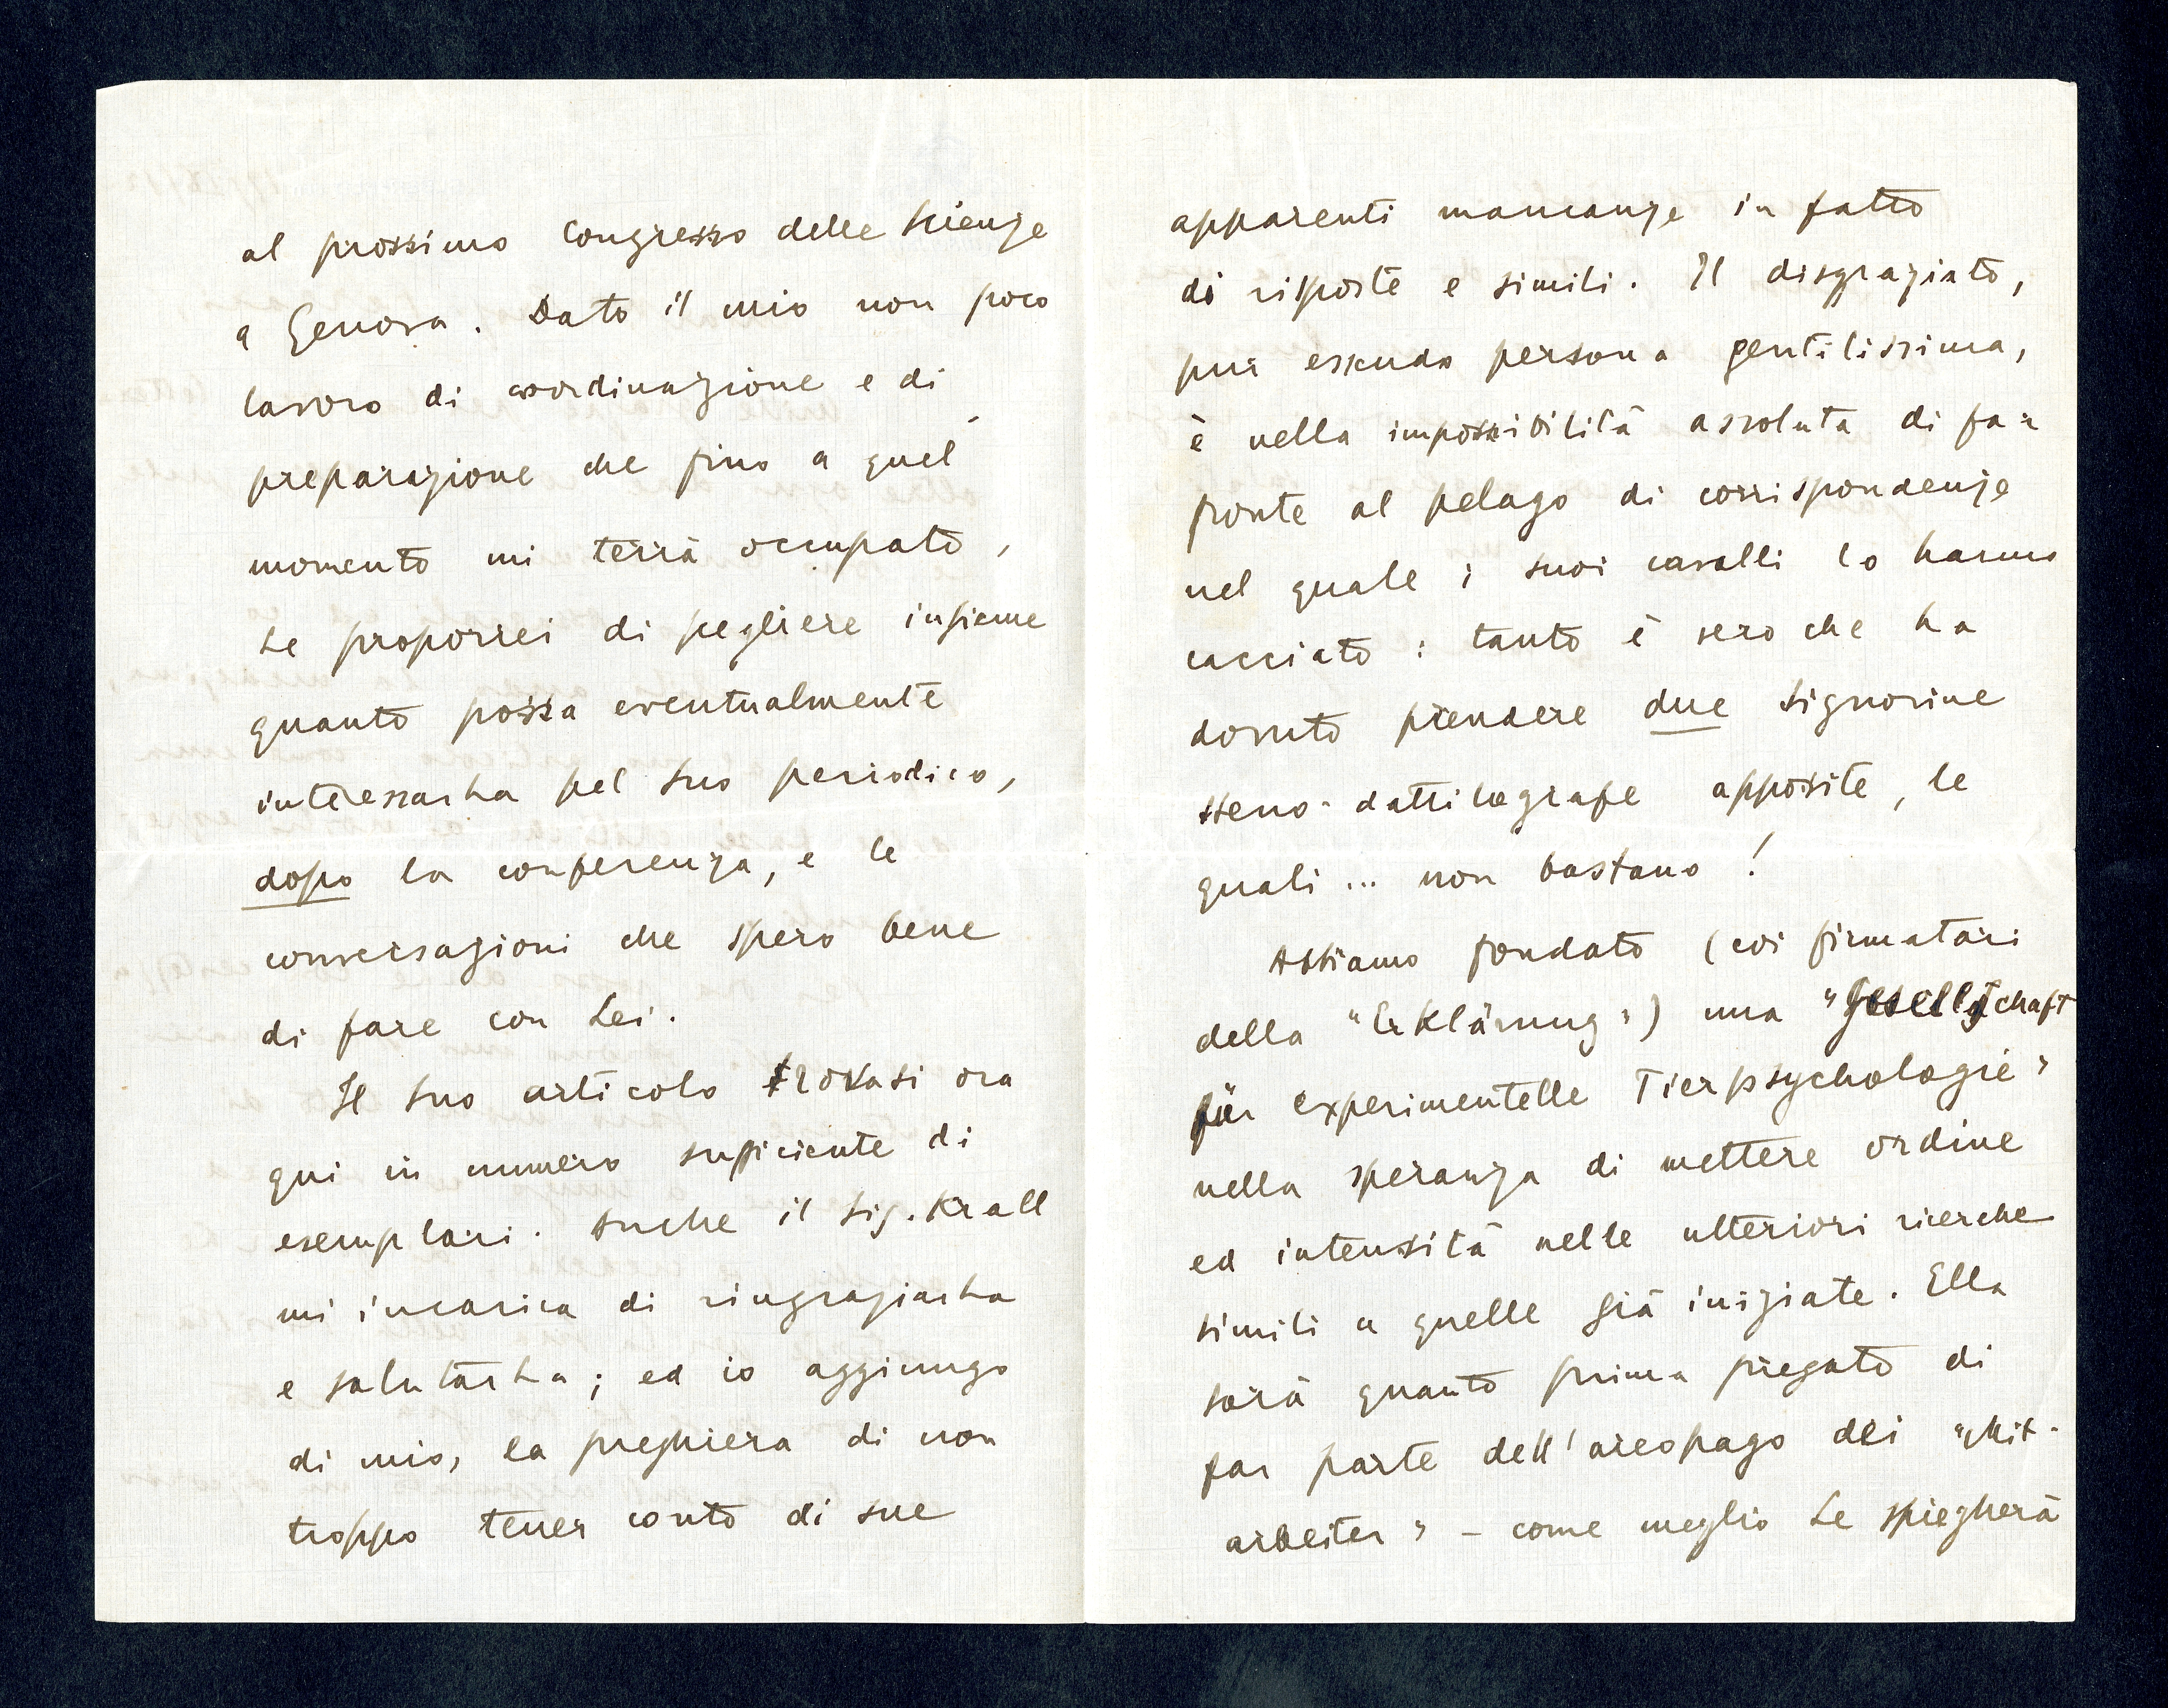 al prossimo Congresso delle Scienze
a Genova. Dato il mio non poco
lavoro di coordinazione e di
preparazione che fino a quel
momento mi terrà occupato,
Le proporrei di scegliere insieme
quanto possa eventualmente
interessarLa pel Suo periodico,
dopo la conferenza, e le
conversazioni che spero bene
di fare con Lei.
Il Suo articolo trovasi ora
qui in numero sufficiente di
esemplari. Anche il Sig. Krall
mi incarica di ringraziarLa
e salutarLa; ed io aggiungo
di mio, la preghiera di non
troppo tener conto di sue
apparenti mancanze in fatto
di risposte e simili. Il disgraziato,
pur essendo persona gentilissima,
è nella impossibilità assoluta di far
fronte al pelago di corrispondenze
nel quale i suoi cavalli lo hanno
cacciato: tanto è vero che ha
dovuto prendere due signorine
steno-dattilografe apposite, le
quali ... non bastano!
Abbiamo fondato (coi firmatari
della "Erklärung") una "Gesellschaft
für experimentelle Tierpsychologie"
nella speranza di mettere ordine
ed intensità nelle ulteriori ricerche
simili a quelle già iniziate. Ella
sarà quanto prima pregato di
far parte dell'areopago dei "Mit-
arbeiter" - come meglio Le spiegherà